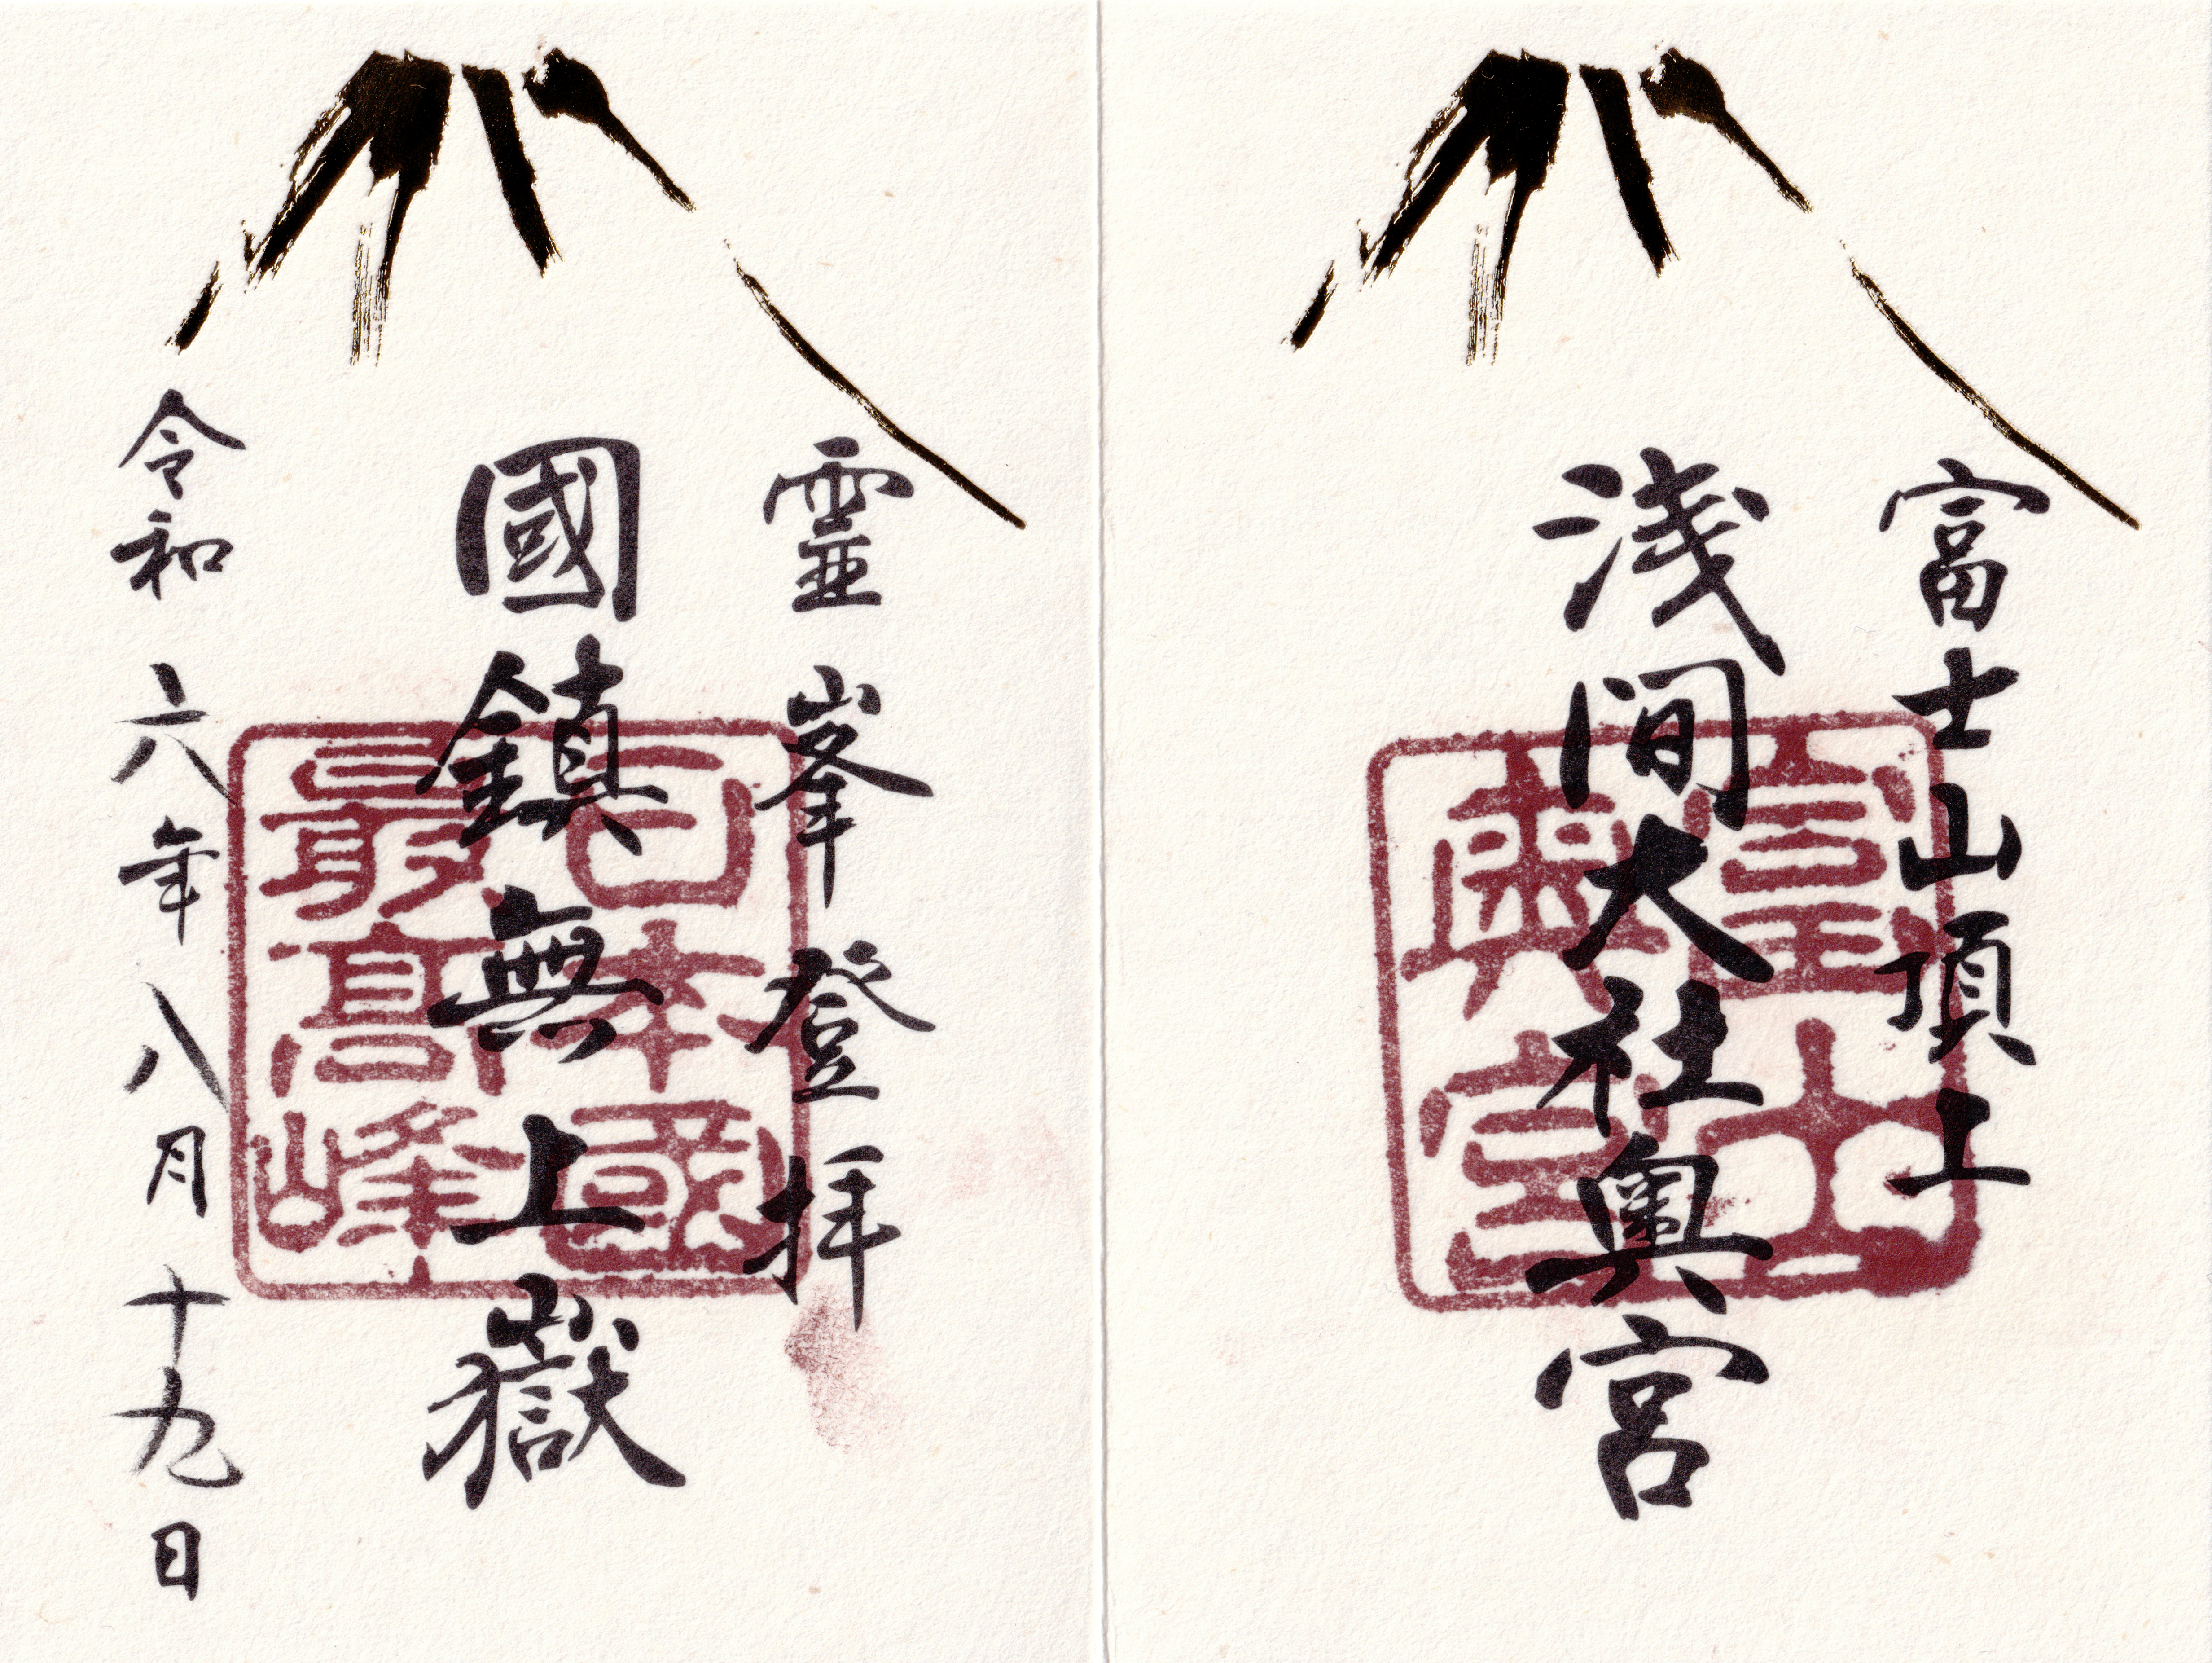 富士山頂上
浅間大社奥宮
奥宮
靈峯登拝
國鎮無上嶽
令和六年八月十九日
日本國
最高峰